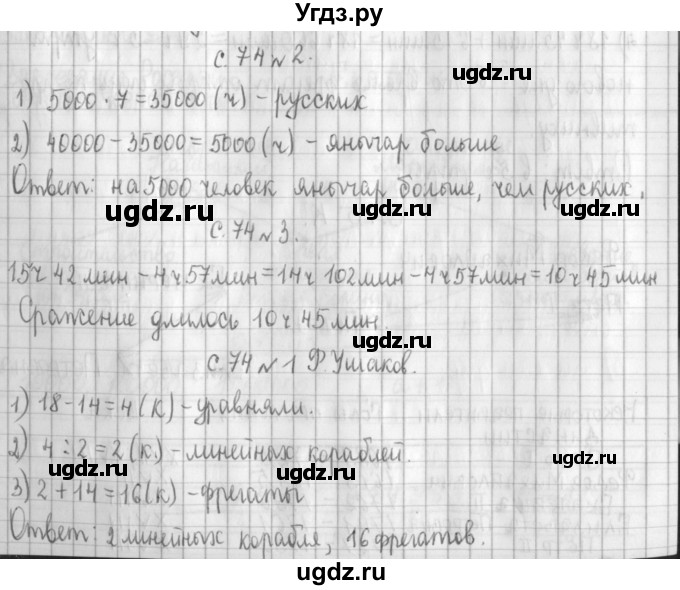 Угдз.ру
с. 74 №2.
1) 5000 · 7 = 35000 (ч) - русских
ugdz.ru ugdz.ru
2) 40000 - 35000 = 5000 (ч) - янычар больше
Ответ: на 5000 человек янычар больше, чем русских.
ugdz.ru ugdz.ru
с. 74 № 3.
15ч 42 мин - 4ч 57мин = 14ч 102мин - 4ч 57мин = 10ч 45мин
Сражение длилось 10ч 45мин.
ugdz.ru
с. 74 № 1 Ф. Ушаков.
1) 18 - 14 = 4 (к) - уравняли.
2) 4 : 2 = 2 (к) - линейных кораблей.
ugdz.ru ugdz.ru
3) 2 + 14 = 16 (к) - фрегаты
Ответ: 2 линейных корабля, 16 фрегатов.
ugdz.ru